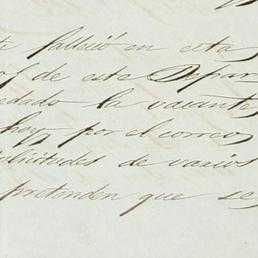 falleció en esta
de este Depar
edado la vacante
hoy, por el correo
licitudes de varios
pretenden que se